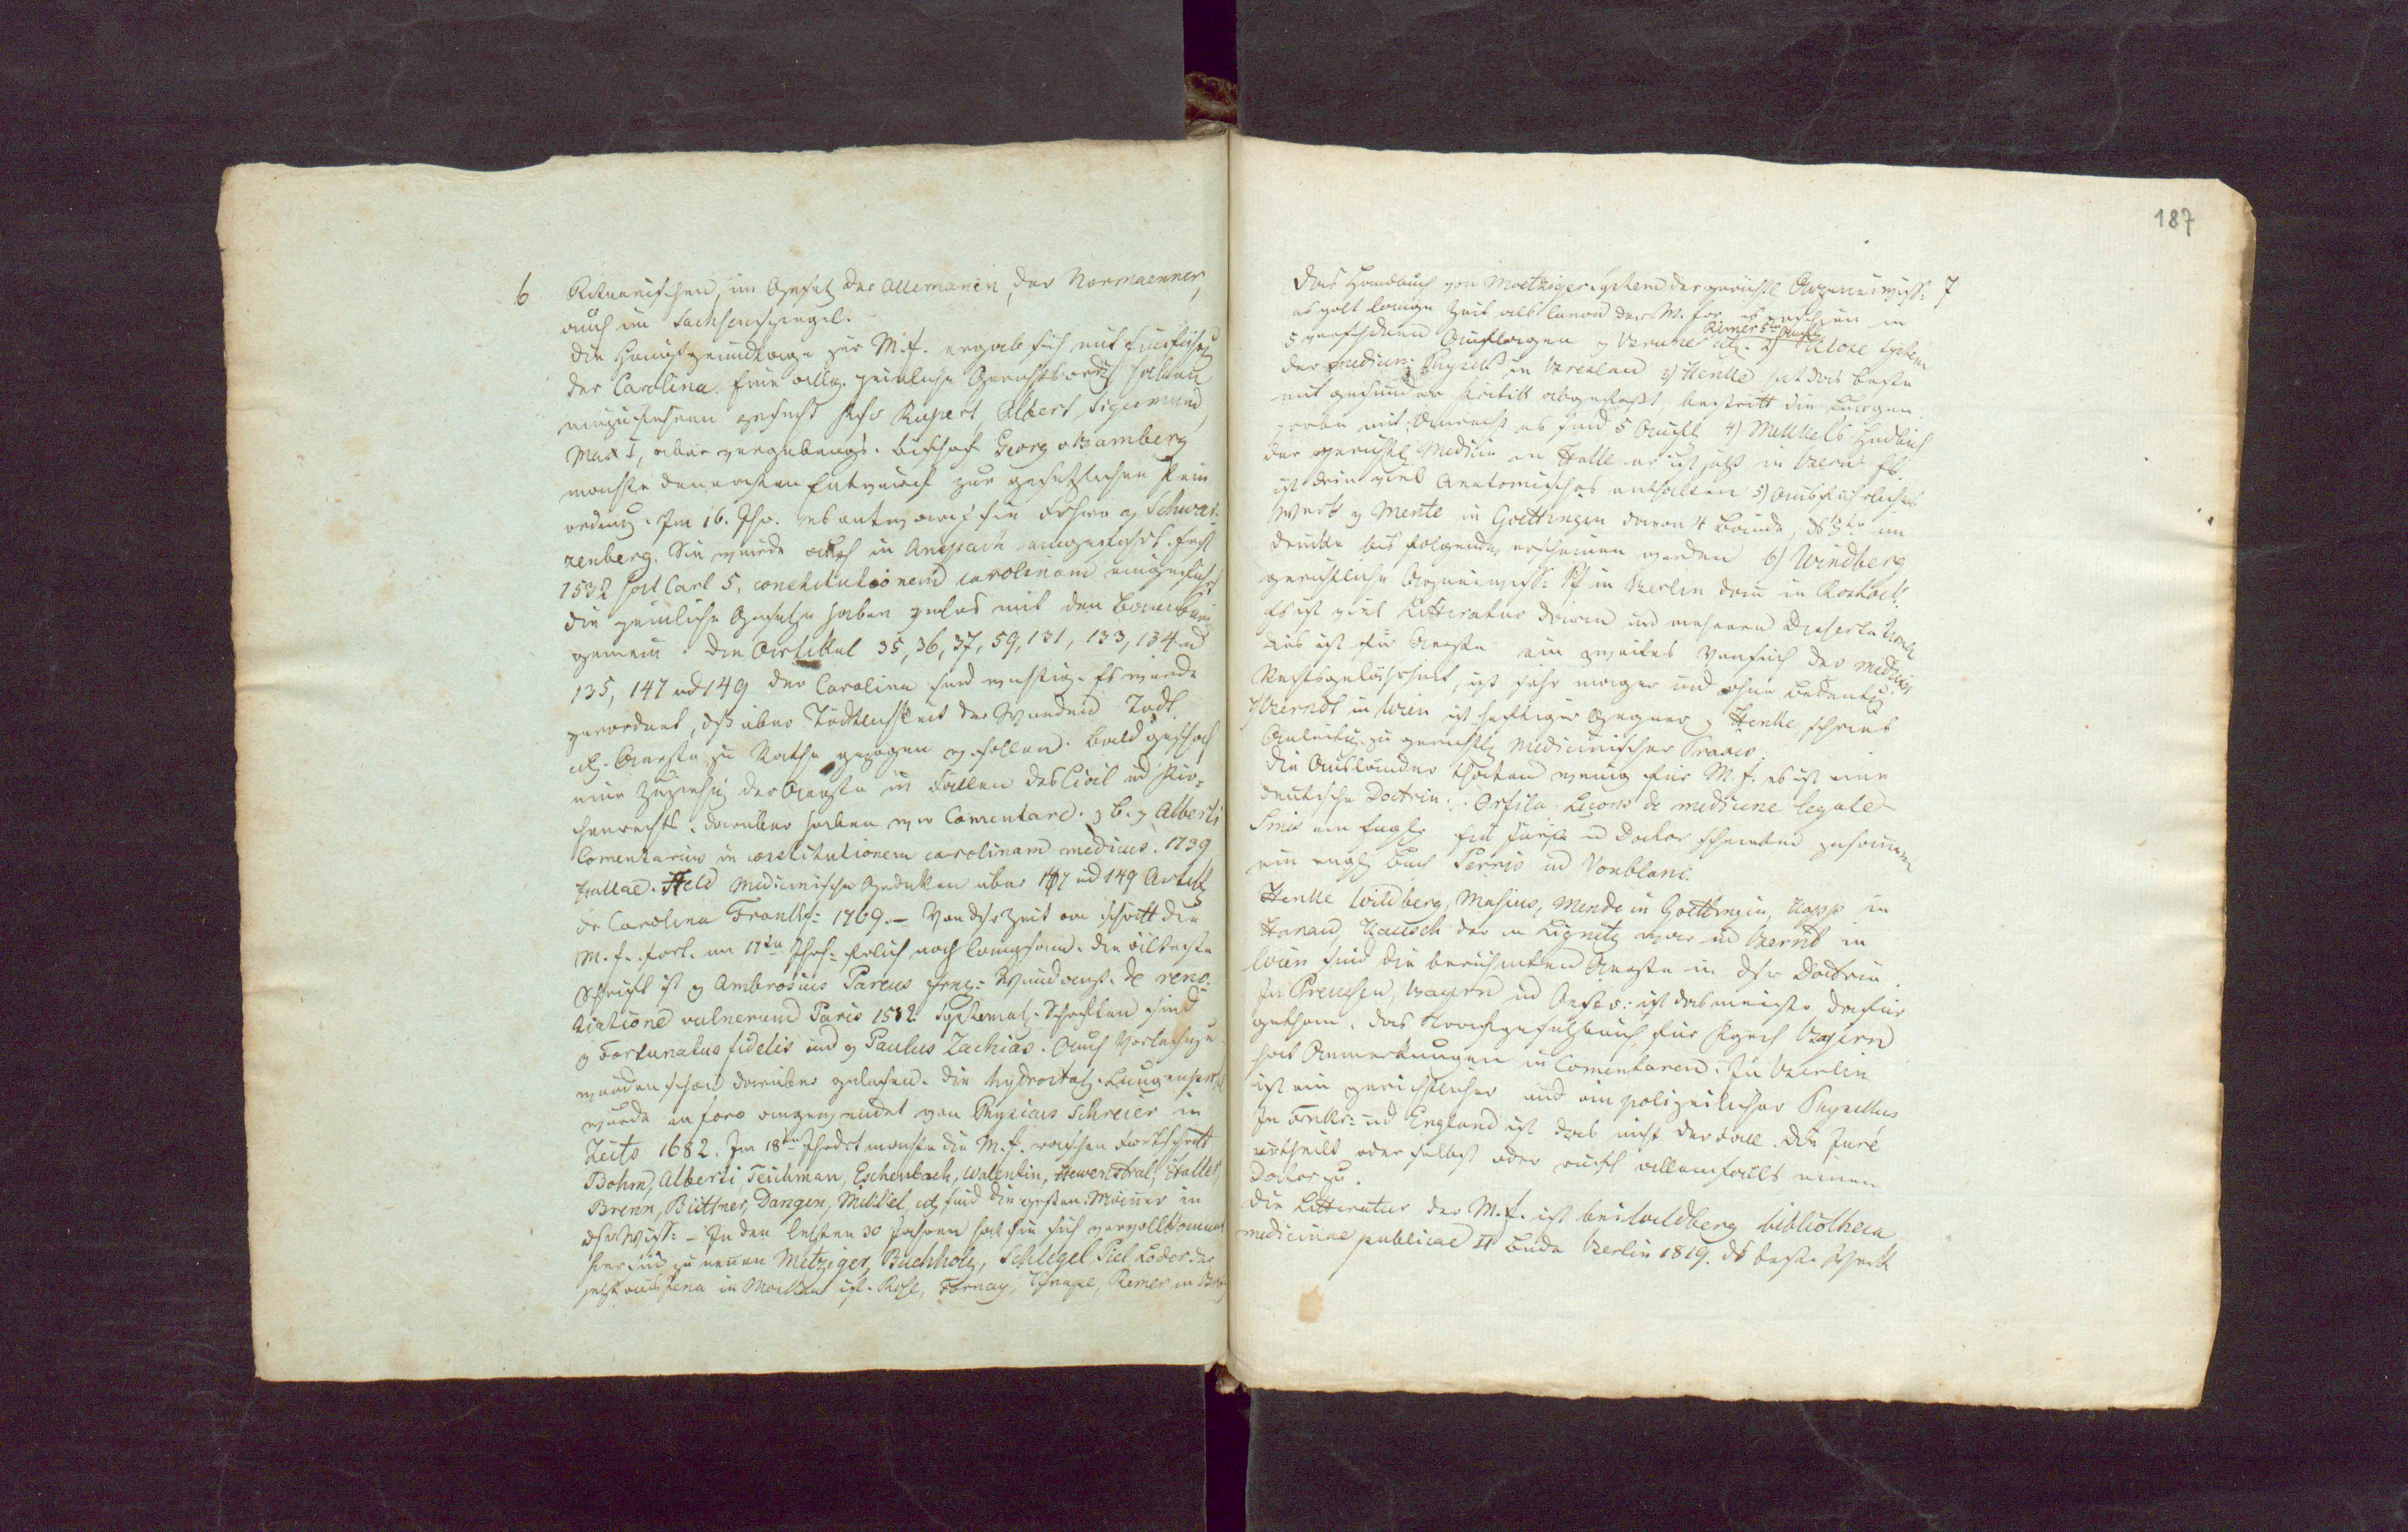 6
Ritua​rischen, im Gesetz der Allemanen, der Normaenner,
auch im Sachsenspiegel.
Die Hauptgrundlage zur M.f. ergab sich mit Einführg
der Carolina. Eine allg. peinliche Gerichtsordg haben
einzuführen gesucht Rupert, Albert, Sigismund,
Max I, aber vergebens. Bischof Georg v Bamberg
machte den ersten Entwurf zur gesetzlichen Pein
ordng. Im 16. Jhr. es entwarf sie Frhr v Schwar-
zenberg. Sie wurde auch in Anspach eingeführt. Erst
1532 hat Carl 5. constitutionem carolinam eingeführt
die peinliche Gesetze haben vieles mit den Bamberg
gemein. Die Artikel 35, 36, 37, 59, 131, 133, 134 ud
135, 147 ud 149 der Carolina sind wichtig. Es wurde
verordnet, dß über Tödtlichkeit der Wunden Todt
Aerzte zu Rathe gezogen w. sollen. Bald geschah
eine Zuziehg der Aerzte in Fällen des Civil ud Kir-
chenrechts. Darüber haben wir Comentare. z. B. v Alberti
Comentarius in constitutionem carolinam medicus. 1739
Hallae. Held medicinische Gedanken über 147 ud 149 Artik
dr Carolina Frankf: 1769. – Von dsr Zeit an schritt die
M. f. fort. im 17ten Jhrh: freilich noch langsam. Die älteste
Schrift ist v Ambrosius Pareus frnz: Wundarzt. De renu-
tiatione vulnerum Paris 1582. Systemat. Schriften sind
v Fortunatus fidelis und v Paulus Zachias. Auch Vorlesungen
wurden schon darüber gelesen. Die hydrostat. Lungenprobe
wurde in foro angewendet von Physicus Schreier in
Zeits 1682. Im 18ten Jhrdt machte die M. f. raschen Fortschritt
Bohn, Alberti, Teichman, Eschenbach, Valentin, Hewenstral, Haller,
Brenn, Büttner, Dangen, Mükkel, sind die ersten Männer in
dsr Wiss: – In den letzten 30 Jahren hat sie sich vervollkomnet
hier sind zu nenen Metziger, Buchholz, Schlegel, Piel Loder der
jetzt aus Jena in Moskau ist. Rose, Formay, Knape, Remer in Bresl

187
7
Das Handbuch von Metziger System der gerichtl Arzneiwiss:
es galt lange Zeit als Canon der M. for. es erschien in
5 verschidnen Auflagen v Remer 5te Aufl. 2) Klose System
der medicin: Physik in Breslau 3) Henke hat das beste
mit gesunder Kritik abgefaßt, bestritt die Lungen
probe mit Unrecht es sind 5 Aufl. 4) Mekkels Hndbuch
der gerichtl Medicin in Halle er ist jetzt in Bern. Es
ist drin viel Anatomisches enthalten 5) Ausführliches
Werk v Mente in Goettingen davon 4 Bände, im
Drucke die folgenden erscheinen werden 6) Windberg
gerichtliche Arzneiwiss: Pf in Berlin dan in Rostock.
Es ist viel Litteratur darin und mehrere Disertationen
dies ist für Aerzte ein zweites Versuch der medicin
Rechtsgelährheit, ist sehr mager und ohne Bedeutg
7) Berndt in Wien ist heftiger Gegner v Henke schrieb
Anleitg zu gerichtl medicinischer Praxis.
Die Ausländer thaten wenig für M. f. es ist eine
deutsche Doctrin. Orfila Leçons de medicine legale
Smis ein Engl. Ein Jurist u Doctor schrieben zusammen
ein engl. Buch Perris ud Vonblanc.
Henke Wildberg, Masius, Mende in Goettingen, Kopp in
Hanau Kausch der in Lignitz war ud Bernt in
Wien sind die berühmten Aerzte in dsr Doctrin.
In Preussen, Bayern ud Oester: ist das meiste dafür
gethan. Das Strafgesetzbuch für Kgreich Bayern
hat Anmerkungen u Comentaren. In Berlin
ist ein gerichtlicher und ein polizeilicher Physikus
In Frnkr: ud England ist das nicht der Fall. Die Juré
urtheilt oder selbst oder ruft allenfalls einen
Doctor zu.
Die Litteratur der M. f. ist bei Wildberg bibliotheca
medicinae publicae II Bnde Berlin 1819. ds beste Werk